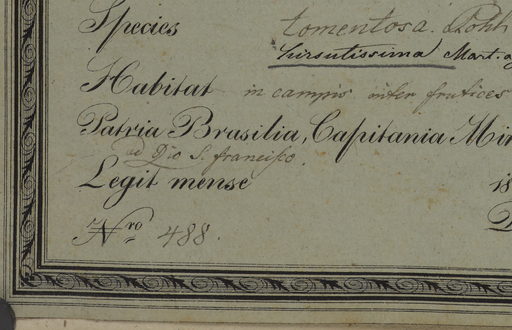 Species tomentosa. Pohl
hirsutissima Mart.
Habitat in campis inter frutices
Patria Brasilia, Capitania Min
ad Rio S. Francisco.
Legit mense 18
Nro 488.